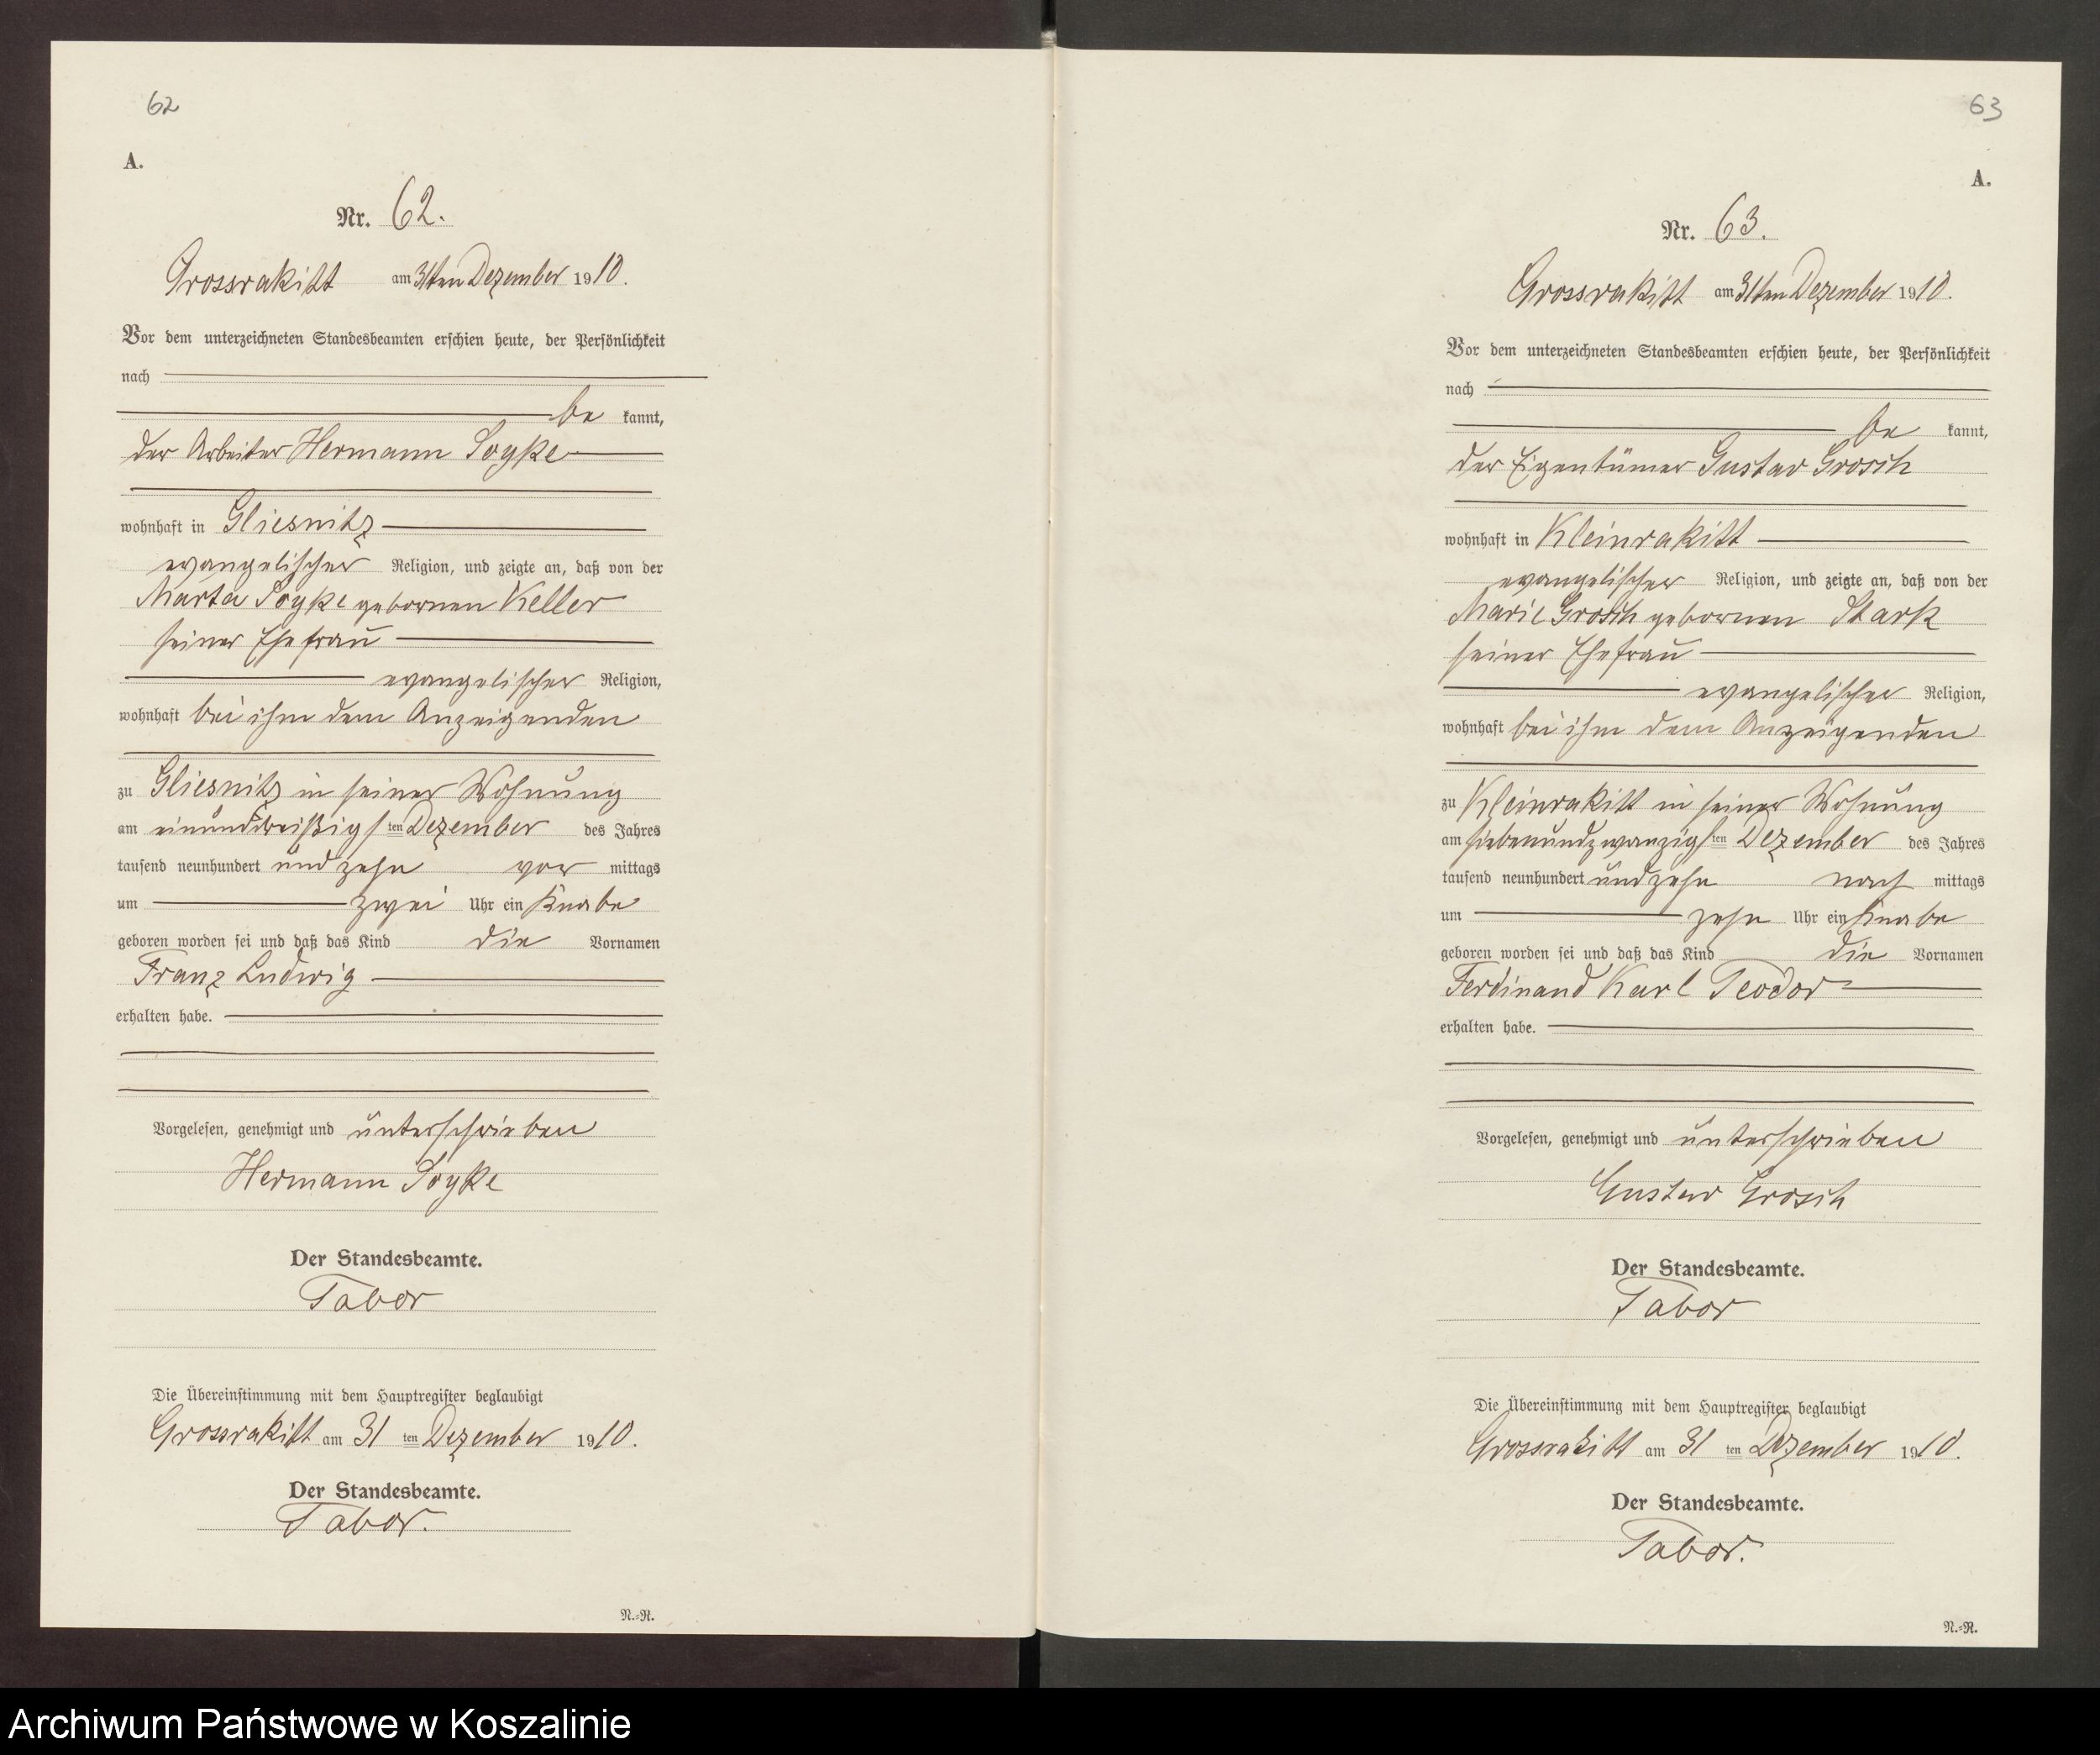 62
A.
Nr. 62.
Grossrakitt am 31ten Dezember 1910.
Vor dem unterzeichneten Standesbeamten erschien heute, der Persönlichkeit
nach
be kannt,
der Arbeiter Hermann Soyke
wohnhaft in Gliesnitz
evangelischer Religion, und zeigte an, daß von der
Marta Soyke gebornen Keller
seiner Ehefrau
evangelischer Religion,
wohnhaft bei ihm dem Anzeigenden
zu Gliesnitz in seiner Wohnung
am einunddreißigsten Dezember des Jahres
tausend neunhundert und zehn vor mittags
um zwei Uhr ein Knabe
geboren worden sei und daß das Kind die Vornamen
Franz Ludwig
erhalten habe.
Vorgelesen, genehmigt und unterschrieben
Hermann Soyke
Der Standesbeamte.
Tabor
Die Übereinstimmung mit dem Hauptregister beglaubigt
Grossrakitt am 31 ten Dezember 1910.
Der Standesbeamte.
Tabor.
N.-R.
63
A.
Nr. 63.
Grossrakitt am 31ten Dezember 1910.
Vor dem unterzeichneten Standesbeamten erschien heute, der Persönlichkeit
nach
be kannt,
der Eigentümer Gustav Grosch
wohnhaft in Kleinrakitt
evangelischer Religion, und zeigte an, daß von der
Marie Grosch gebornen Stark
seiner Ehefrau
evangelischer Religion,
wohnhaft bei ihm dem Anzeigenden
zu Kleinrakitt in seiner Wohnung
am siebenundzwanzigsten Dezember des Jahres
tausend neunhundert und zehn nach mittags
um zehn Uhr ein Knabe
geboren worden sei und daß das Kind die Vornamen
Ferdinand Karl Teodor
erhalten habe.
Vorgelesen, genehmigt und unterschrieben
Gustav Grosch
Der Standesbeamte.
Tabor
Die Übereinstimmung mit dem Hauptregister beglaubigt
Grossrakitt am 31 ten Dezember 1910.
Der Standesbeamte.
Tabor.
N.-R.
Archiwum Państwowe w Koszalinie